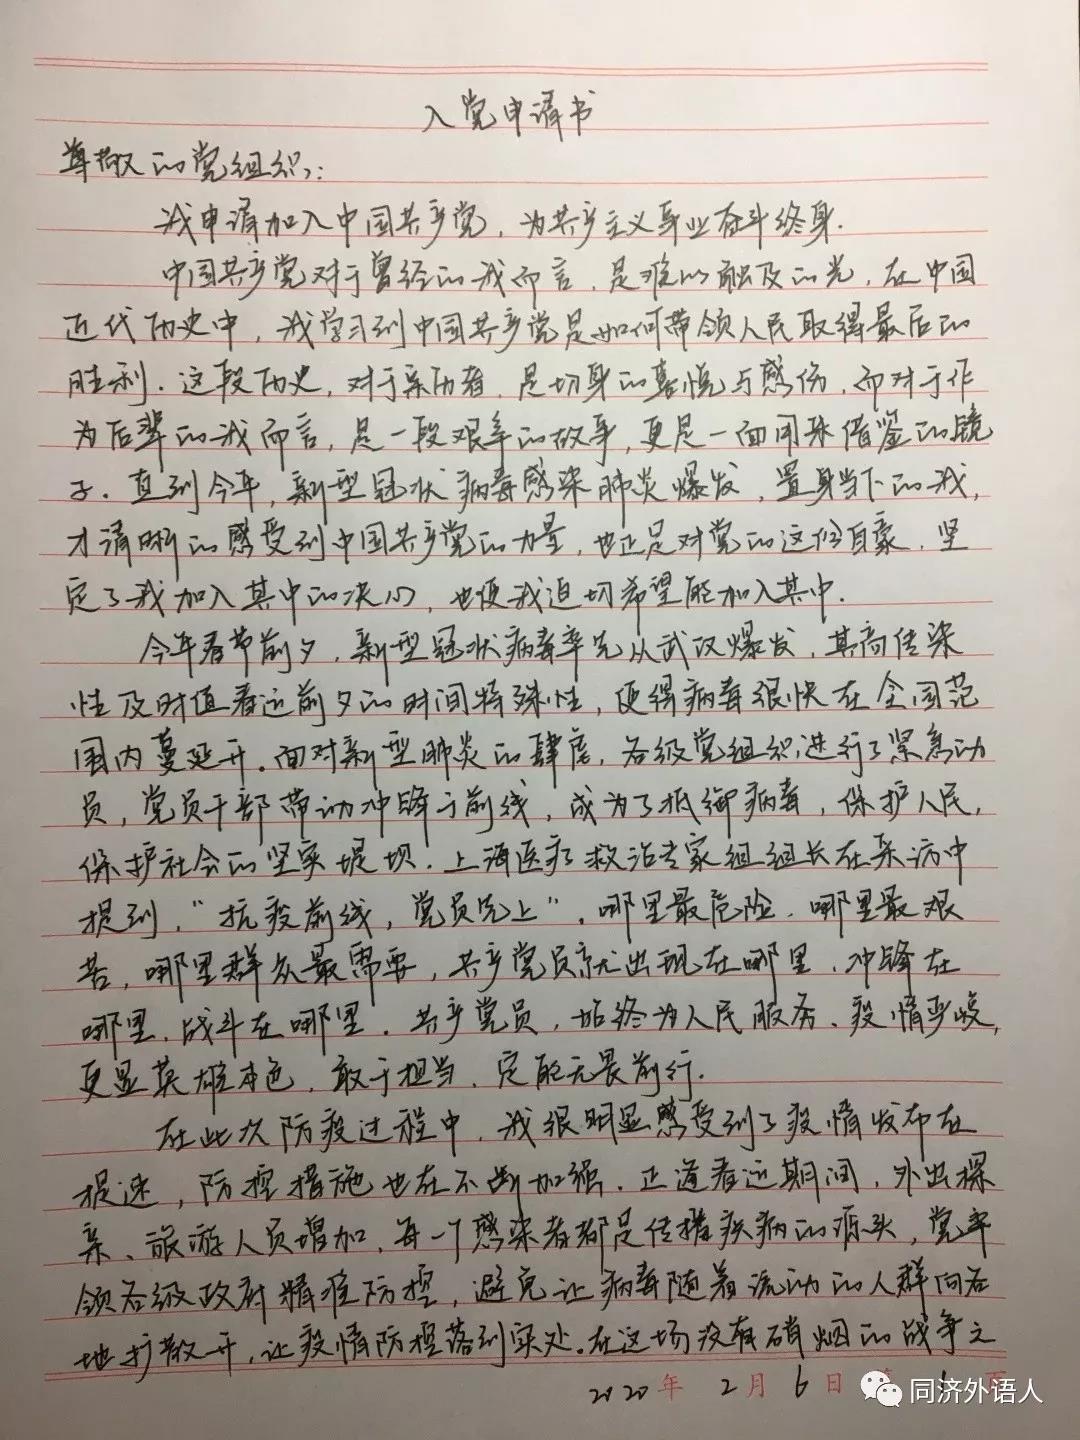 入党申请书
尊敬的党组织：
我申请加入中国共产党，为共产主义事业奋斗终身.
中国共产党对于曾经的我而言，是难以触及的光，在中国
近代历史中，我学习到中国共产党是如何带领人民取得最后的
胜利．这段历史，对于亲历者，是切身的喜悦与感伤，而对于作
为后辈的我而言，是一段艰辛的故事，更是一面用来借鉴的镜
子．直到今年，新型冠状病毒感染肺炎爆发，置身当下的我，
才清晰的感受到中国共产党的力量，也正是对党的这份自豪，坚
定了我加入其中的决心，也使我迫切希望能加入其中.
今年春节前夕，新型冠状病毒率先从武汉爆发，其高传染
性及时值春运前夕的时间特殊性，使得病毒很快在全国范
围内蔓延开．面对新型肺炎的肆虐，各级党组织进行了紧急动
员，党员干部带动冲锋于前线，成为了抵御病毒，保护人民，
保护社会的坚实堤坝．上海医疗救治专家组组长在采访中
提到，“抗疫前线，党员先上”，哪里最危险，哪里最艰
苦，哪里群众最需要，共产党员就出现在哪里，冲锋在
哪里，战斗在哪里．共产党员，始终为人民服务、疫情严峻，
更显英雄本色，敢于担当，定能无畏前行．
在此次防疫过程中，我很明显感受到了疫情发布在
提速，防控措施也在不断加强．正逢春运期间，外出探
亲、旅游人员增加，每一个感染者都是传播疾病的源头，党率
领各级政府精准防控，避免让病毒随着流动的人群向各
地扩散开，让疫情防控落到实处。在这场没有硝烟的战争之
2020年 2月 6日 第 1 页
同济外语人